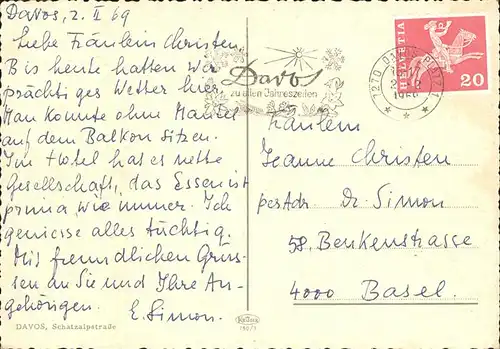 Davos, 2. II 69
Liebe Fräulein Christen.
Bis heute hatten wir
prächtiges Wetter hier.
Man konnte ohne Mantel
auf dem Balkon sitzen.
Im Hotel hat es nette
Gesellschaft, das Essen ist
prima, wie immer. Ich
geniesse alles tüchtig.
Mit freundlichen Grüs-
sen an Sie und Ihre An-
gehörigen. E. Simon.
DAVOS, Schatzalpstraße
Davos
zu allen Jahreszeiten
7270 DAVOS PLATZ 1
HELVETIA
20
Fräulein
Jeanne Christen
pr adr. Dr. Simon
58, Benkenstrasse
4000 Basel.